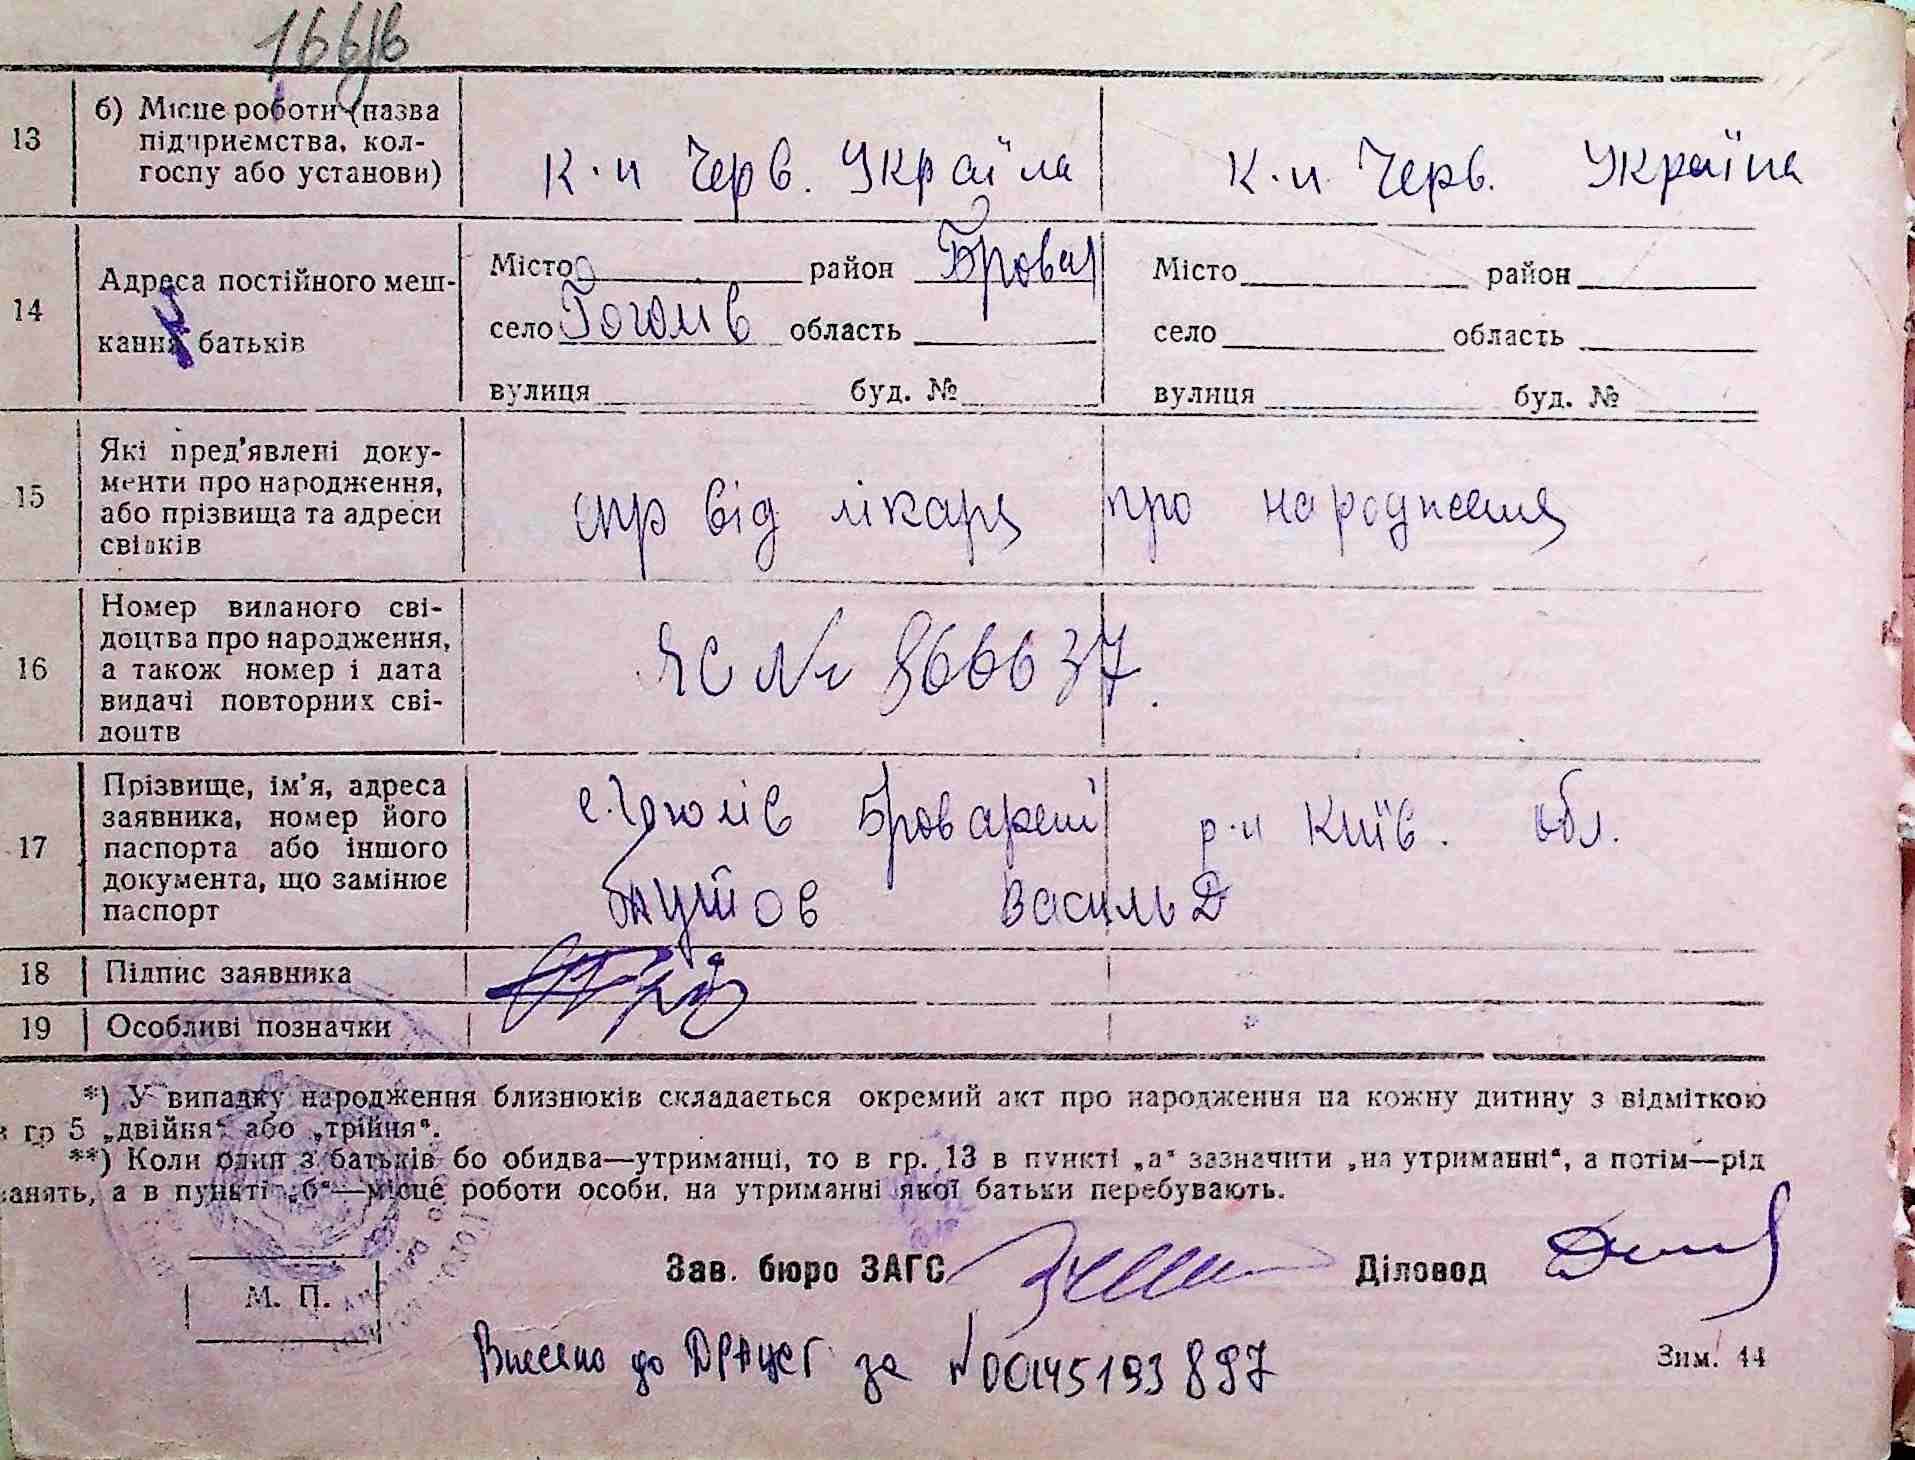 166/в
13 б) Місце роботи (назва підприємства, колгоспу або установи)
к-п Черв. Україна к-п Черв. Україна
14 Адреса постійного мешкання батьків
Місто район Бровар Місто район
село Гоголів область село область
вулиця буд. № вулиця буд. №
15 Які пред'явлені документи про народження, або прізвища та адреси свідків
спр від лікаря про народження
16 Номер виданого свідоцтва про народження, а також номер і дата видачі повторних свідоцтв
ЯС № 866637.
17 Прізвище, ім'я, адреса заявника, номер його паспорта або іншого документа, що замінює паспорт
с. Гоголів Броварский р-н Київ. обл.
Василь Д
18 Підпис заявника
19 Особливі позначки
*) У випадку народження близнюків складається окремий акт про народження на кожну дитину з відміткою
гр 5 „двійня“ або „трійня“.
**) Коли один з батьків бо обидва—утриманці, то в гр. 13 в пункті „а“ зазначити „на утриманні“, а потім—рід
занять, а в пункті „б“—місце роботи особи, на утриманні якої батьки перебувають.
Зав. бюро ЗАГС Діловод
М. П.
Внесено до ДРАЦСГ за №00145193897
Зим. 44